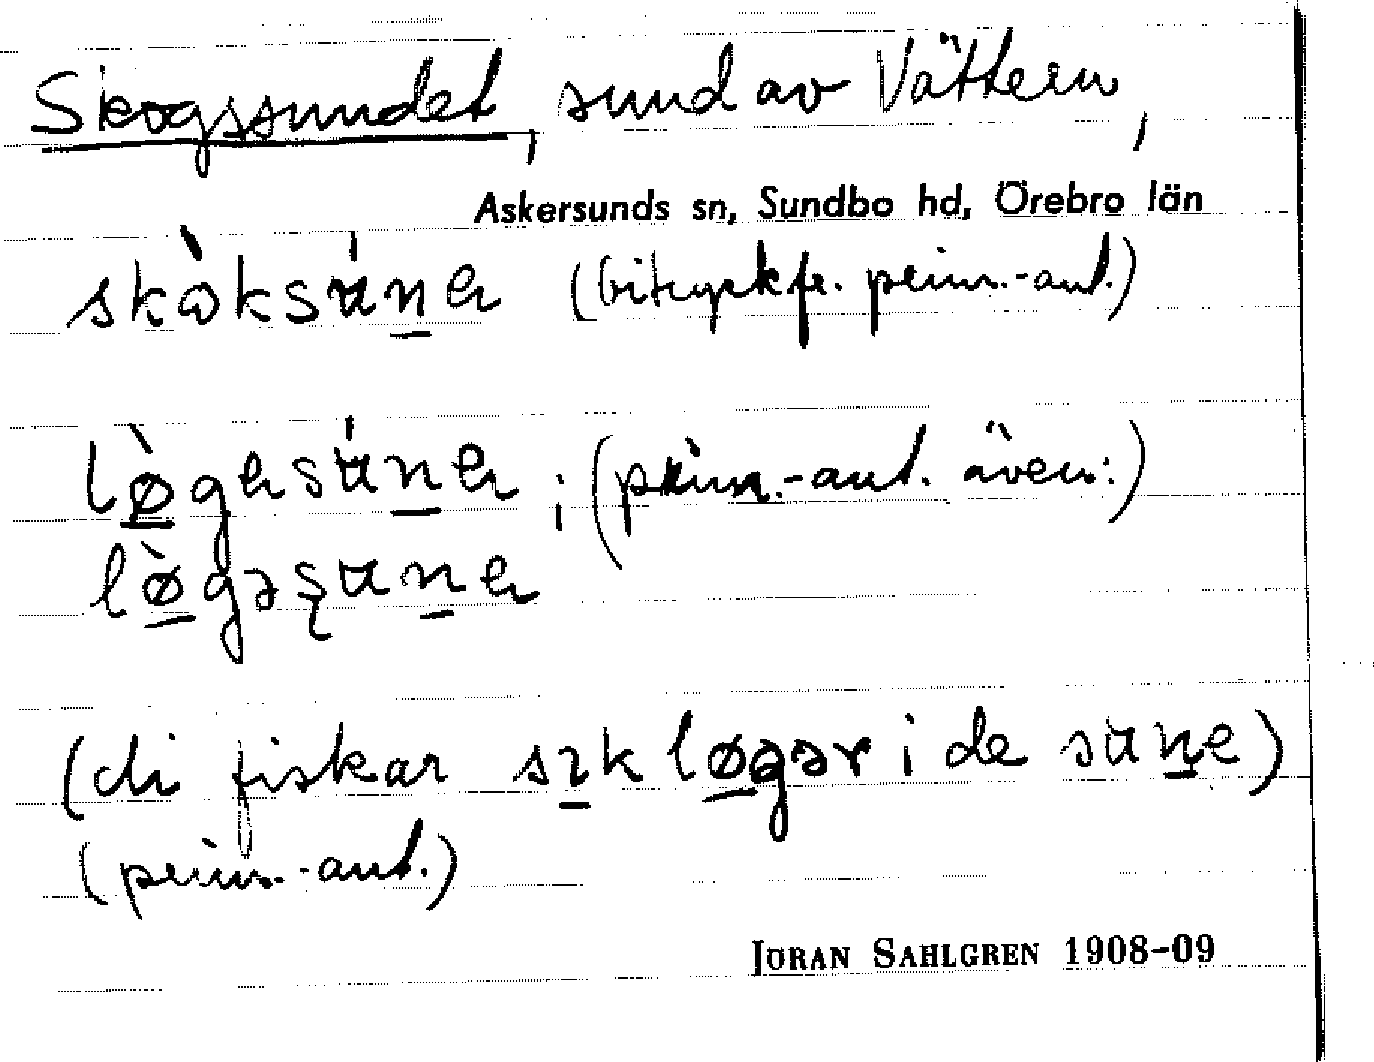 Skogssundet, sund av Vättern,
Askersunds sn, Sundbo hd, Örebro län
skὼksɯ́n̲ea (bitryckfr. prim.-ant.)
lø̲̀geasɯ́n̲ea ; (prim.-ant. även:)
lø̲̀gəʂɯn̲ea
(di fiskar sı̲k lø̲gər i de sɯn̲e)
(prim.-ant.)
JÖRAN SAHLGREN 1908-09